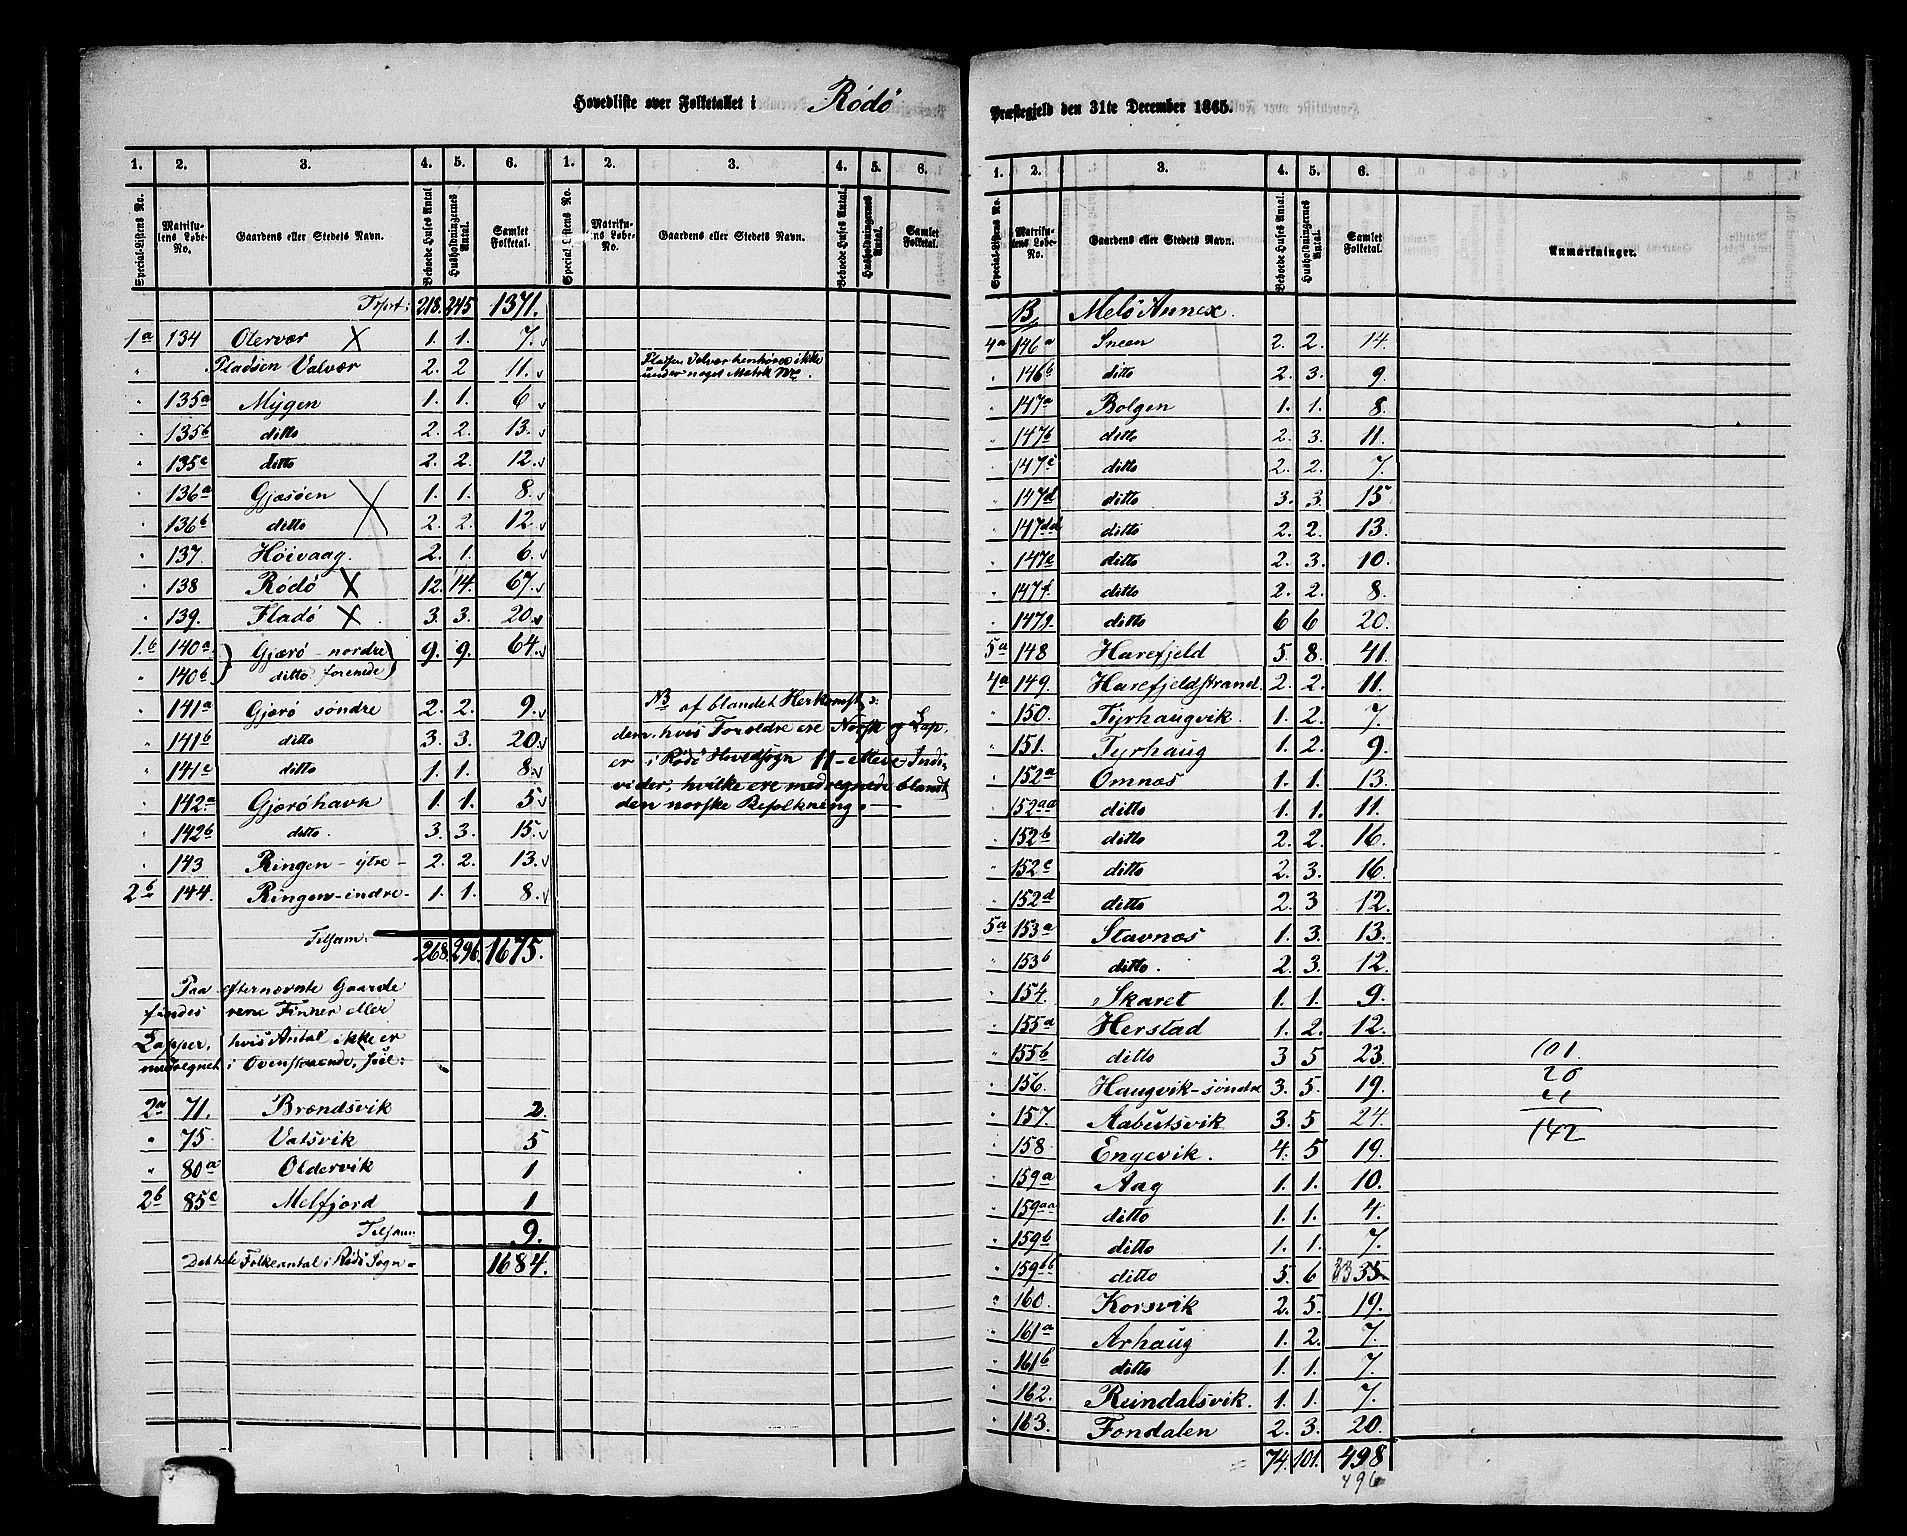 Hovedliste over Folketallet i Rödö
1. 2. 3. 4. 5. 6. 1. 2. 3. 4. 5. 6.
Special-Listens No. Matrikulens Løbe-No. Gaardens eller Stedets Navn. Beboede Huses Antal Husholdningernes Antal. Samlet Folketal. Special-Listens No. Matrikulens Løbe-No. Gaardens eller Stedets Navn. Beboede Huses Antal. Husholdningernes Antal. Samlet Folketal.
Trsprt: 218. 245 1371.
1a 134 Olervær X 1. 1. 7.
" Pladsen Valvær 2. 2 11.
" 135a Mygen 1. 1. 6
" 135b ditto 2. 2. 13.
" 135c ditto 2. 2. 12.
" 136a Gjæsöen X 1. 1. 8.
" 136b ditto 2. 2. 12.
" 137. Höivaag. 2. 1. 6.
" 138 Rödö X 12. 14. 67.
" 139. Fladö X 3. 3. 20.
1.b 140a Gjærö nordre 9. 9. 64.
" 140b ditto forenede
" 141a Gjærö söndre 2. 2. 9.
" 141b ditto 3. 3. 20.
" 141c ditto 1. 1. 8.
" 142a Gjæröhavn 1. 1. 5
" 142b ditto. 3. 3. 15.
" 143 Ringen - ytre - 2. 2. 13.
2b 144. Ringen - indre - 1. 1. 8.
Tilsam: 268. 296. 1675.
Paa efternævnte Gaarde
findes rene Finner eller
Lapper, hvis Antal ikke er
medregnet i Ovenstaaende,
2a 71. Brændsvik 2.
" 75. Valsvik 5
" 80a Oldervik 1
2b 85c Melfjord 1
Tilsam: 9.
Det hele Folkeantal i Rödö Sogn = 1684.
Pladsen Valvær henhörer ikke
under noget Matrk No.
NB af blandet Herkomst, ɔ:
dem, hvis Forældre ere Norsk og Lap,
er i Rödö Hovedsogn 11 - elleve - Indi-
vider, hvilke ere medregnede blandt
den norske Befolkning. -
Præstegjeld den 31te December 1865.
1. 2. 3. 4. 5. 6.
Special-Listens No. Matrikulens Løbe-No. Gaardens eller Stedets Navn. Beboede Huses Antal. Husholdningernes Antal. Samlet Folketal. Anmærkninger.
B, Melö Annex.
4a 146a Sneen 2. 2. 14.
" 146b ditto 2. 3. 9.
" 147a Bolgen 1. 1. 8.
" 147b ditto 2. 3. 11.
" 147c ditto 2. 2. 7.
" 147d ditto 3. 3. 15.
" 147dd ditto 2. 2. 13.
" 147e ditto 2. 3. 10.
" 147f ditto 2. 2. 8.
" 147g. ditto 6 6 20.
5a 148 Harefjeld 5. 8. 41.
4a 149. Harefjeldstrand. 2. 2. 11.
" 150. Tyrhaugvik. 1. 2. 7.
" 151. Tyrhaug 1. 2. 9.
" 152a Omnæs 1. 1. 13.
" 152aa ditto 1. 1. 11.
" 152b ditto 2. 2. 16.
" 152c ditto 2. 3. 16.
" 152d ditto 2. 3 12.
5a 153a Stavnæs 1. 3. 13.
" 153b ditto. 2. 3. 12.
" 154. Skaret 1. 1. 9.
" 155a Herstad 1. 2. 12.
" 155b ditto 3 5 23. 101.
" 156. Haugvik - söndre 3. 5. 19. 20
" 157. Aabutsvik 3. 5 24. 21
" 158 Engevik. 4. 5 19. 142
" 159a Aag 1. 1. 10.
" 159aa ditto 1. 1. 4.
" 159b ditto 1. 1. 7.
" 159bb ditto 5. 6 33 35
" 160. Korsvik 2. 5. 19.
" 161a Arhaug 1. 2. 7.
" 161b ditto 1. 1. 7.
" 162. Reindalsvik. 1. 1. 7.
" 163. Fondalen 2. 3. 20.
74. 101. 498
496